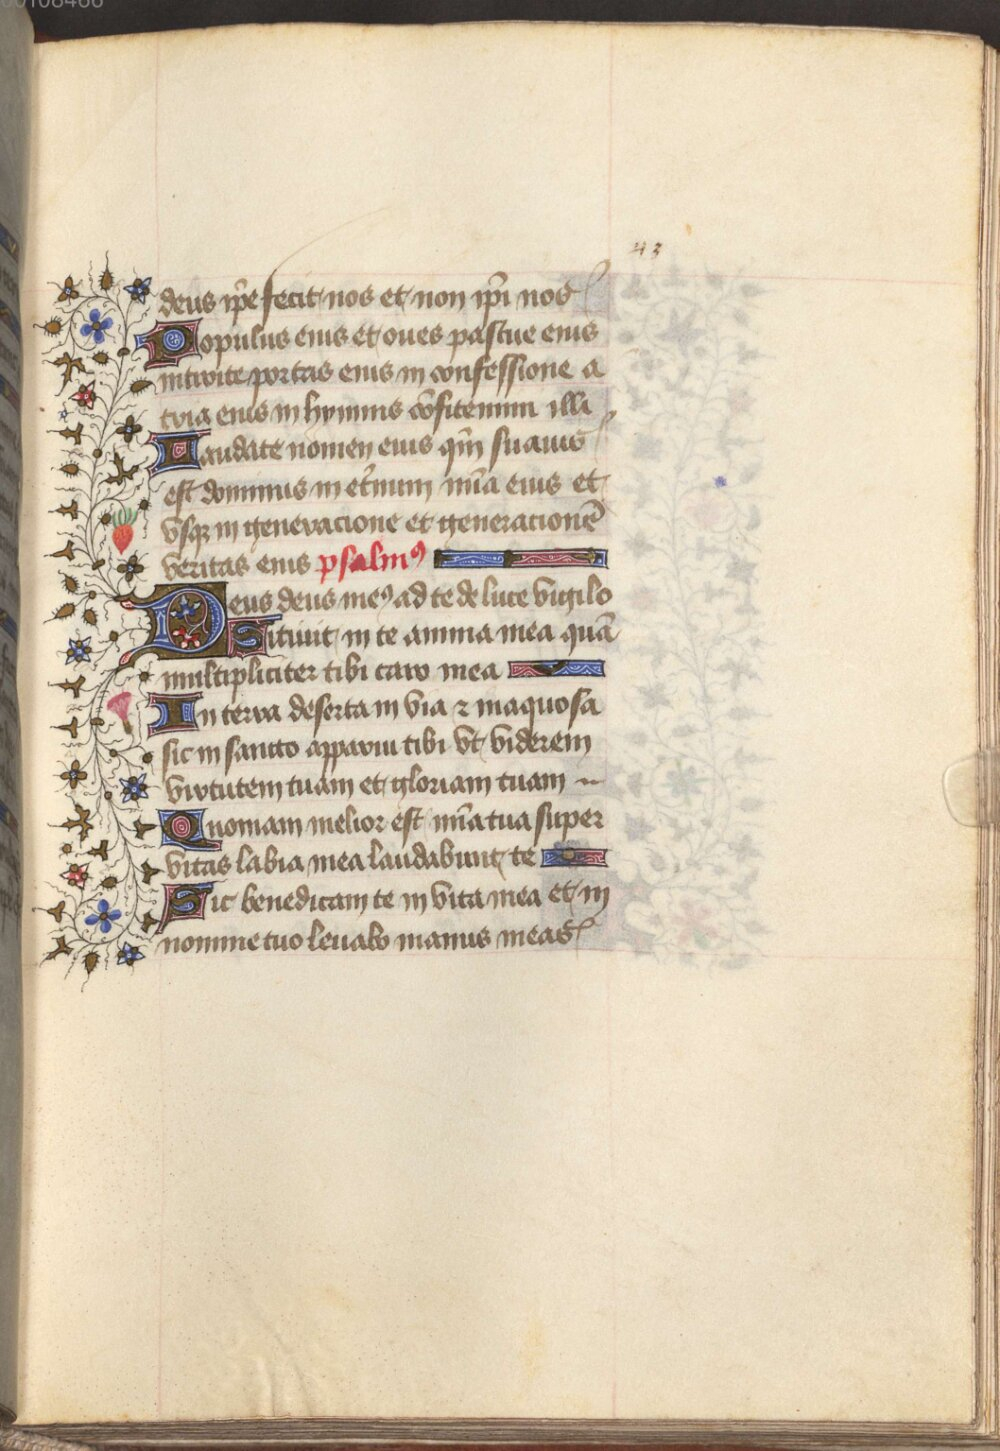 00108466
43
deus ip̄e fecit nos et non ip̄i nos
Populus eius et oues pascue eius
introite portas eius in confessione a
tria eius in hymnis cōfitemini illi
Laudate nomen eius qm̄ suauis
est dominus in et̄num mīa eius et
vsqꝫ in generacione et generationē
veritas eius psalmꝰ
Deus deus meꝰ ad te de luce vigilo
Sitiuit in te anima mea quā
multipliciter tibi caro mea
In terra deserta in via ⁊ inaquosa
sic in sancto apparui tibi vt viderem
virtutem tuam et gloriam tuam
Quoniam melior est mīa tua super
vitas labia mea laudabunt te
Sic benedicam te in vita mea et in
nomine tuo leuabo manus meas